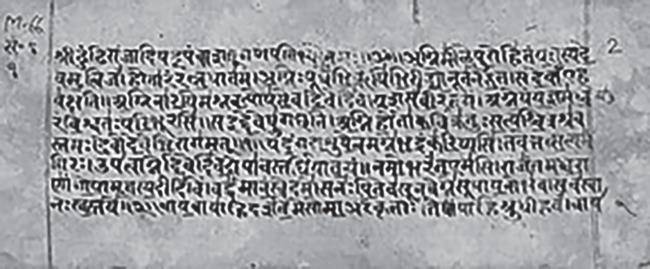 M-66
2
अग्निमीळे पुरोहितं यज्ञस्य दे
वमृत्विजं। होतारं रत्नधातमं॥ अग्निः पूर्वेभिर्ऋषिभिरीड्यो नूतनैरुत। स देवाँ एह
वक्षति॥ अग्निना रयिमश्नवत्पोषमेव दिवेदिवे। यशसं वीरवत्तमं॥ अग्ने यं यज्ञमध्व
रं विश्वतः परिभूरसि। स इद्देवेषु गच्छति॥ अग्निर्होता कविक्रतुः सत्यश्चित्रश्रव
स्तमः। देवो देवेभिरागमत्॥१॥ यदंग दाशुषे त्वमग्ने भद्रं करिष्यसि। तवेत्तत्सत्यमं
गिरः। उप त्वाग्ने दिवेदिवे दोषावस्तर्धिया वयं॥ नमो भरंत एमसि। राजंतमध्वरा
णां गोपामृतस्य दीदिविं। वर्धमानं स्वे दमे॥ स नः पितेव सूनवेग्ने सूपायनो भव। सचस्वा
नः स्वस्तये॥२॥ वायवा याहि दर्शतेमे सोमा अरंकृताः। तेषां पाहि श्रुधी हवं॥ वाय